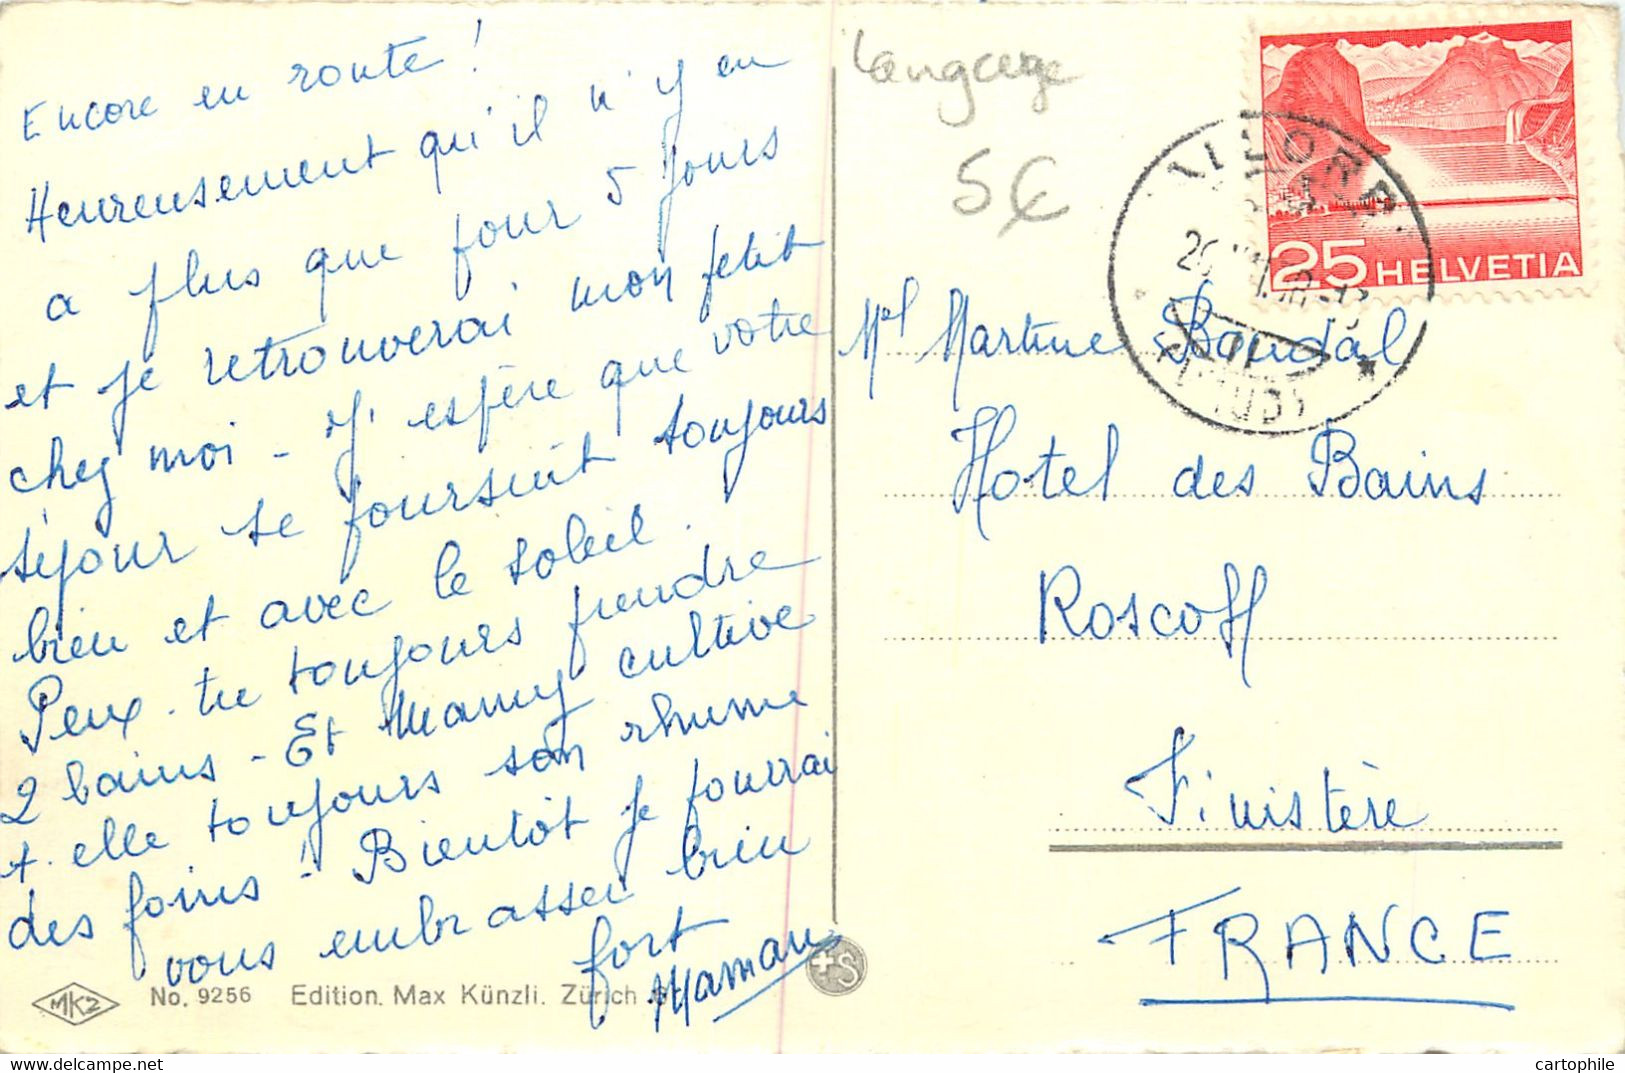 Encore en route !
Heureusement qu'il n'y en
a plus que pour 5 jours
et je retrouverai mon petit
chez moi - J'espère que votre
séjour se poursuit toujours
bien et avec le soleil.
Peux-tu toujours prendre
2 bains - Et Mamy cultive
t. elle toujours son rhume
des foins ! Bientôt je pourrai
vous embrasser bien
fort
Maman
MK2
No. 9256 Edition. Max Künzli. Zürich
+S
Langage
5€
25 HELVETIA
Ml Martine Boudal
Hotel des Bains
Roscoff
Finistère
FRANCE
cartophile